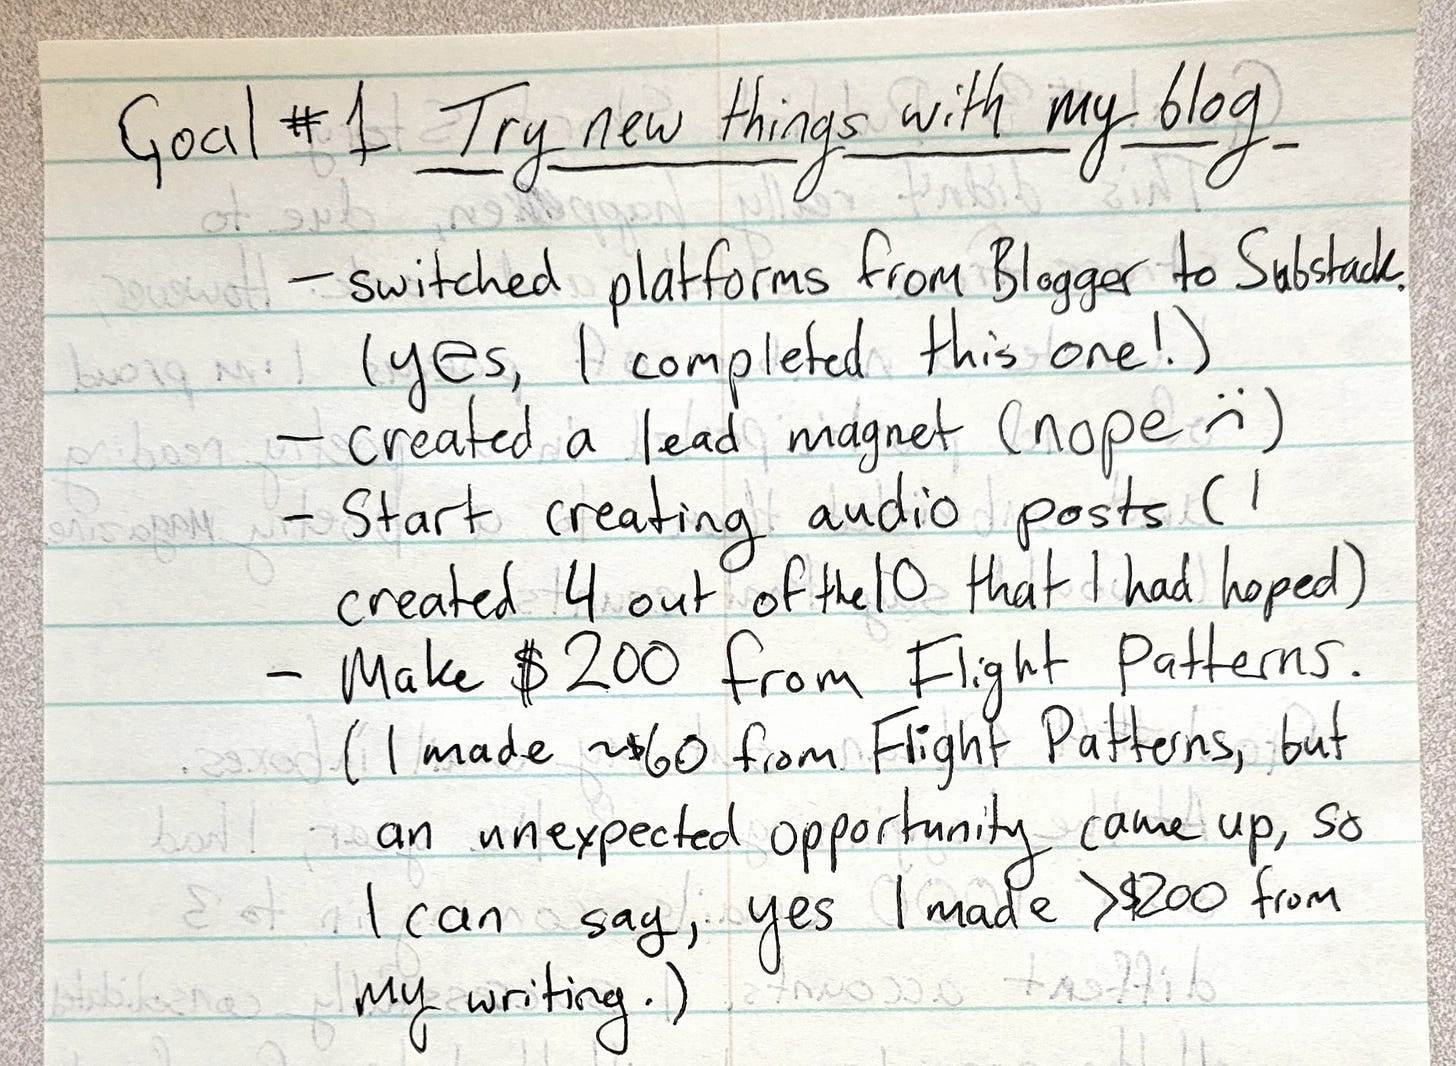 Goal #1 Try new things with my blog
– switched platforms from Blogger to Substack.
(yes, I completed this one!)
– created a lead magnet (nope :( )
– Start creating audio posts (I
created 4 out of the 10 that I had hoped)
– Make $200 from Flight Patterns.
(I made ~$60 from Flight Patterns, but
an unexpected opportunity came up, so
I can say, yes I made >$200 from
my writing.)